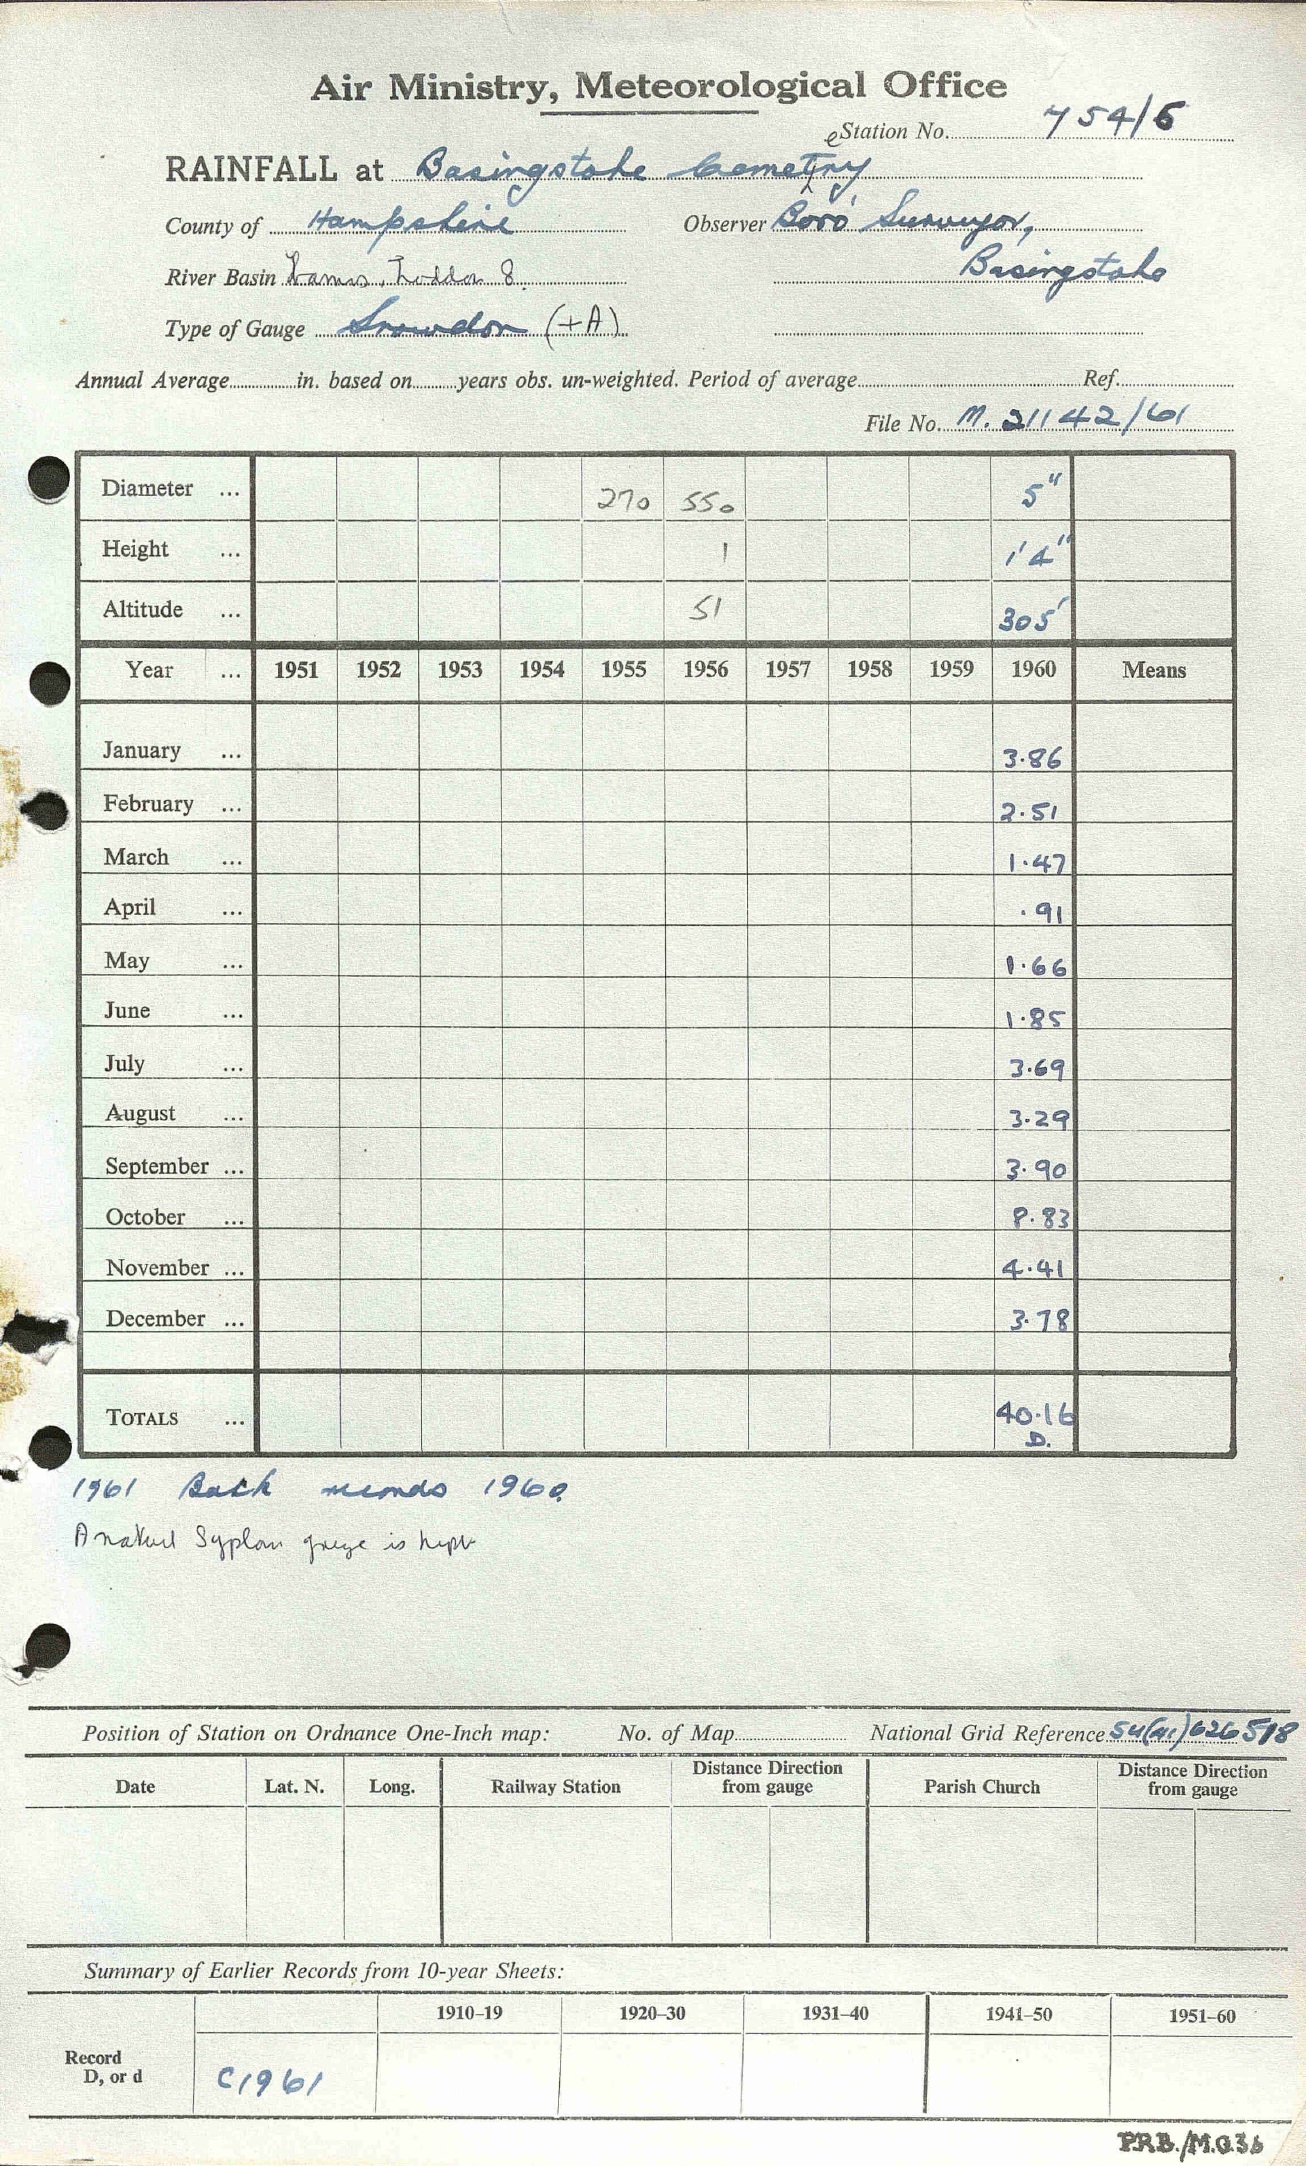 Air Ministry, Meteorological Office
Station No. 754/6
RAINFALL at Basingstoke Cemetery
e
County of Hampshire Observer Boro' Surveyor,
River Basin Thames, Loddon 8 Basingstoke
Type of Gauge Snowdon (+A)
Annual Average in. based on years obs. un-weighted. Period of average Ref.
File No. M. 21142/61
Diameter ... 270 550 5"
Height ... 1 1'4"
Altitude ... 51 305'
Year ... 1951 1952 1953 1954 1955 1956 1957 1958 1959 1960 Means
January ... 3.86
February ... 2.51
March ... 1.47
April ... .91
May ... 1.66
June ... 1.85
July ... 3.69
August ... 3.29
September ... 3.90
October ... 8.83
November ... 4.41
December ... 3.78
TOTALS ... 40.16
D.
1961 Back records 1960
A natural Syphon gauge is kept
Position of Station on Ordnance One-Inch map: No. of Map National Grid Reference SU(41)626518
Date Lat. N. Long. Railway Station Distance Direction from gauge Parish Church Distance Direction from gauge
Summary of Earlier Records from 10-year Sheets:
1910–19 1920–30 1931–40 1941–50 1951–60
Record
D, or d C1961
P.R.B./M.O.36